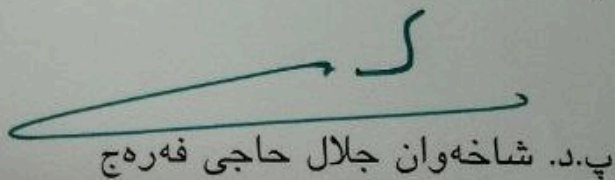 پ.د. شاخەوان جلال حاجی فەرەج